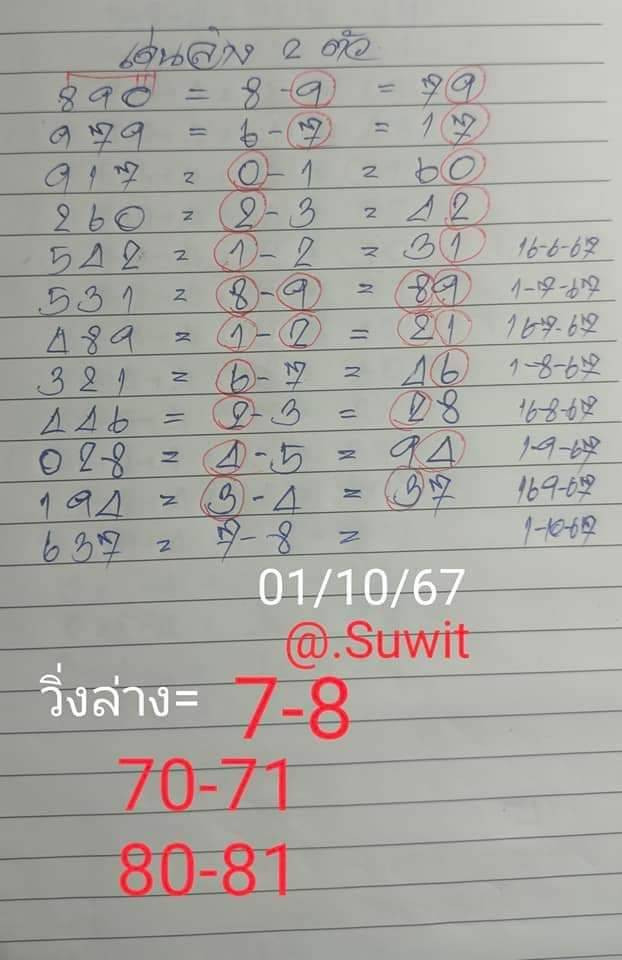 เด่นล่าง 2 ตัว
890 = 8-9 = 79
979 = 6-7 = 17
917 = 0-1 = 60
260 = 2-3 = 42
542 = 1-2 = 31 16-6-67
531 = 8-9 = 89 1-7-67
489 = 1-2 = 21 16-7-67
321 = 6-7 = 46 1-8-67
446 = 2-3 = 28 16-8-67
028 = 4-5 = 94 1-9-67
194 = 3-4 = 37 169-67
637 = 7-8 = 1-10-67
01/10/67
@.Suwit
วิ่งล่าง= 7-8
70-71
80-81